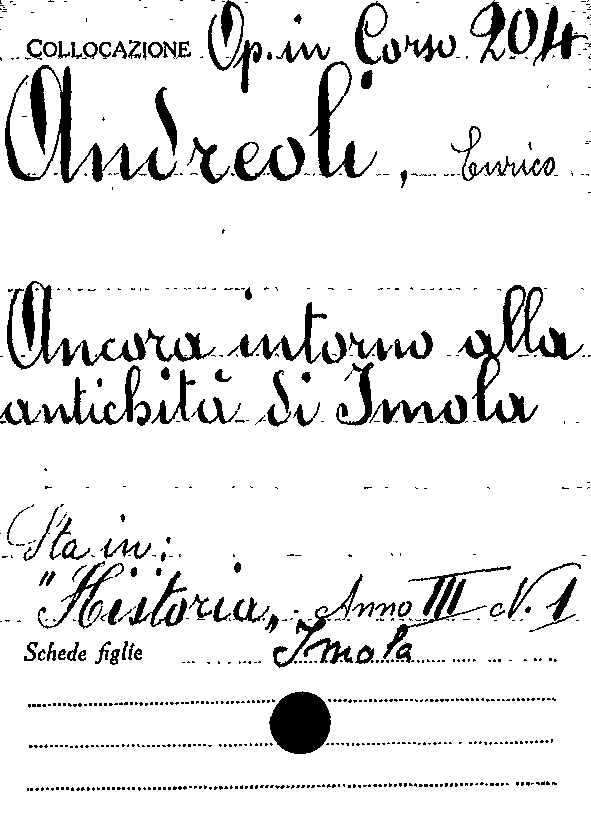 COLLOCAZIONE Op. in Corso 204
Andreoli, Enrico
Ancora intorno alla
antichità di Imola
Sta in:
"Historia" - Anno III N. 1
Schede figlie Imola